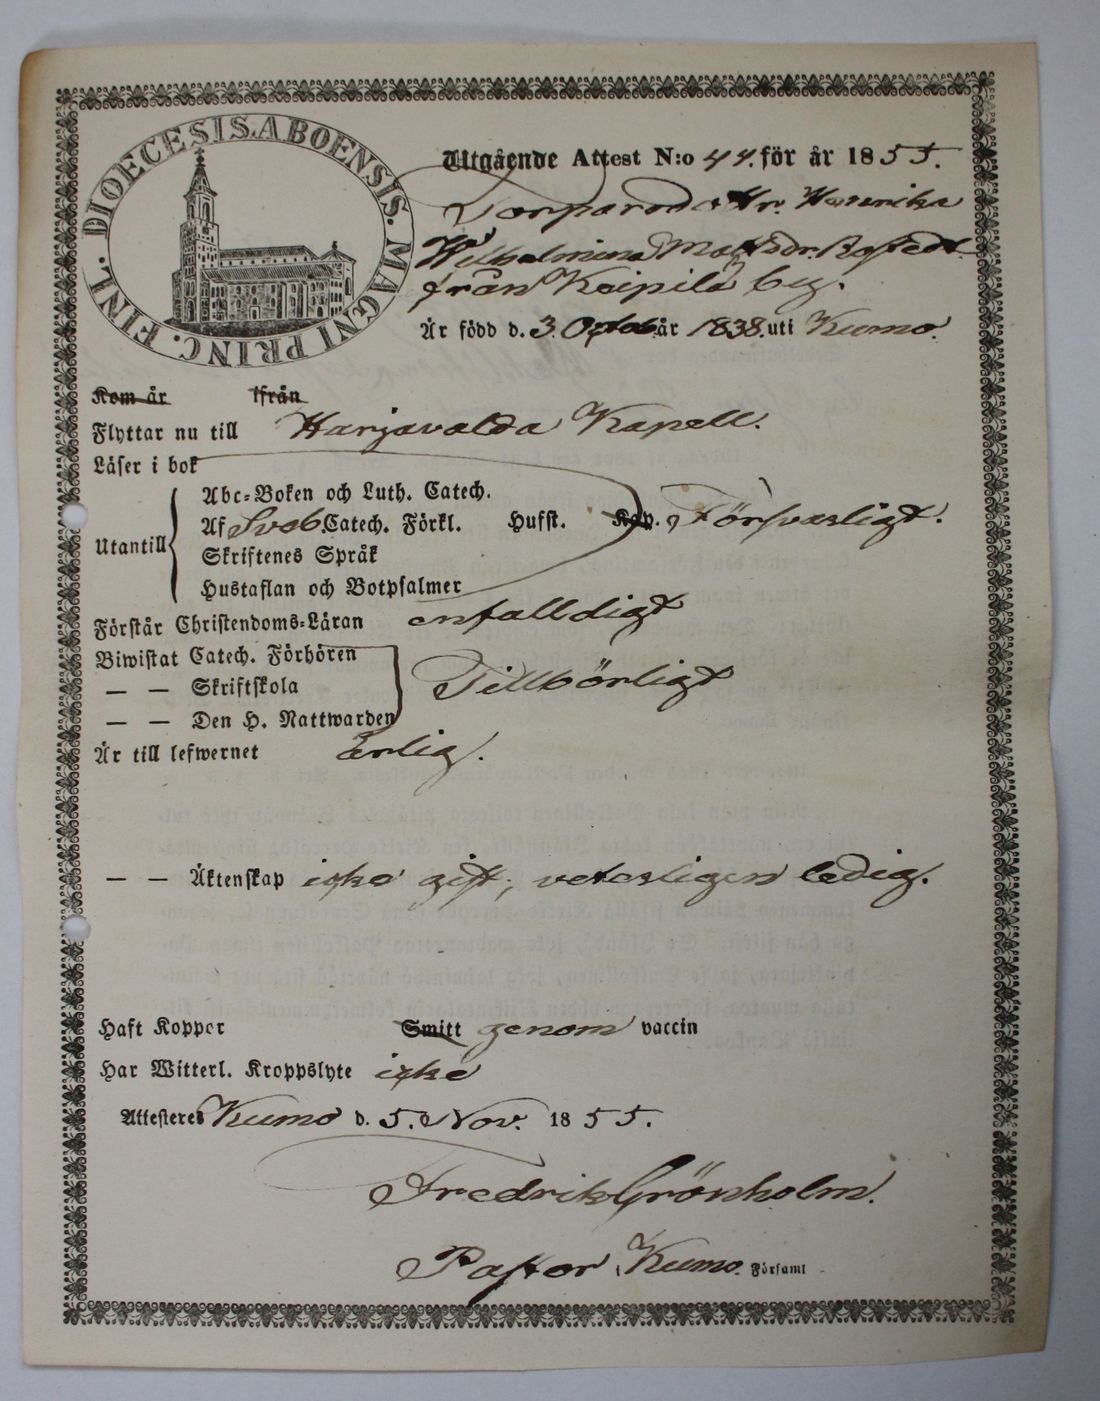 DIOECESIS ABOENSIS. MAGNI PRINC. FINL.
Utgående Attest N:o 44. för år 1855.
Henrika
Wilhelmina
från Keipilä by.
Är född d. 3. Octob. år 1838. uti Kumo.
Kom år ifrån
Flyttar nu till Harjavalda Kapell.
Läser i bok
Utantill
Abc-Boken och Luth. Catech.
Af Sveb. Catech. Förkl. Husst. Kap. Försvarligt.
Skriftenes Språk
Hustaflan och Botpsalmer
Förstår Christendoms-Läran enfalldigt
Biwistat Catech. Förhören
— — Skriftskola Tillbörligt
— — Den H. Nattwarden
Är till lefwernet ärlig.
— — Äktenskap icke gift, veterligen ledig.
Haft Koppor Smitt genom vaccin
Har Witterl. Kroppslyte icke
Attesteres Kumo d. 5. Nov. 1855.
Fredrik Grönholm.
Pastor i Kumo. Församl